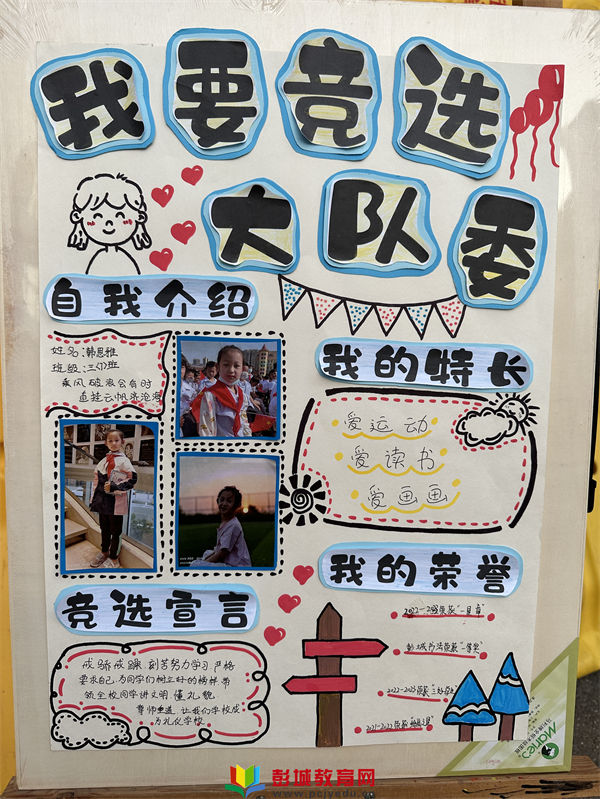 我要竞选
大队委
自我介绍
姓名:韩思雅
班级:三(7)班
乘风破浪会有时
直挂云帆济沧海
我的特长
爱运动
爱读书
爱画画
我的荣誉
彭城书法荣获"一等奖"
2022-2023荣获
2021-2022荣获
竞选宣言
戒骄戒躁 刻苦努力学习 严格
要求自己,为同学们树立好的榜样 带
领全校同学讲文明 懂礼貌
尊师重道,让我们学校成
为礼仪学校
彭城教育网
www.pcjyedu.cn